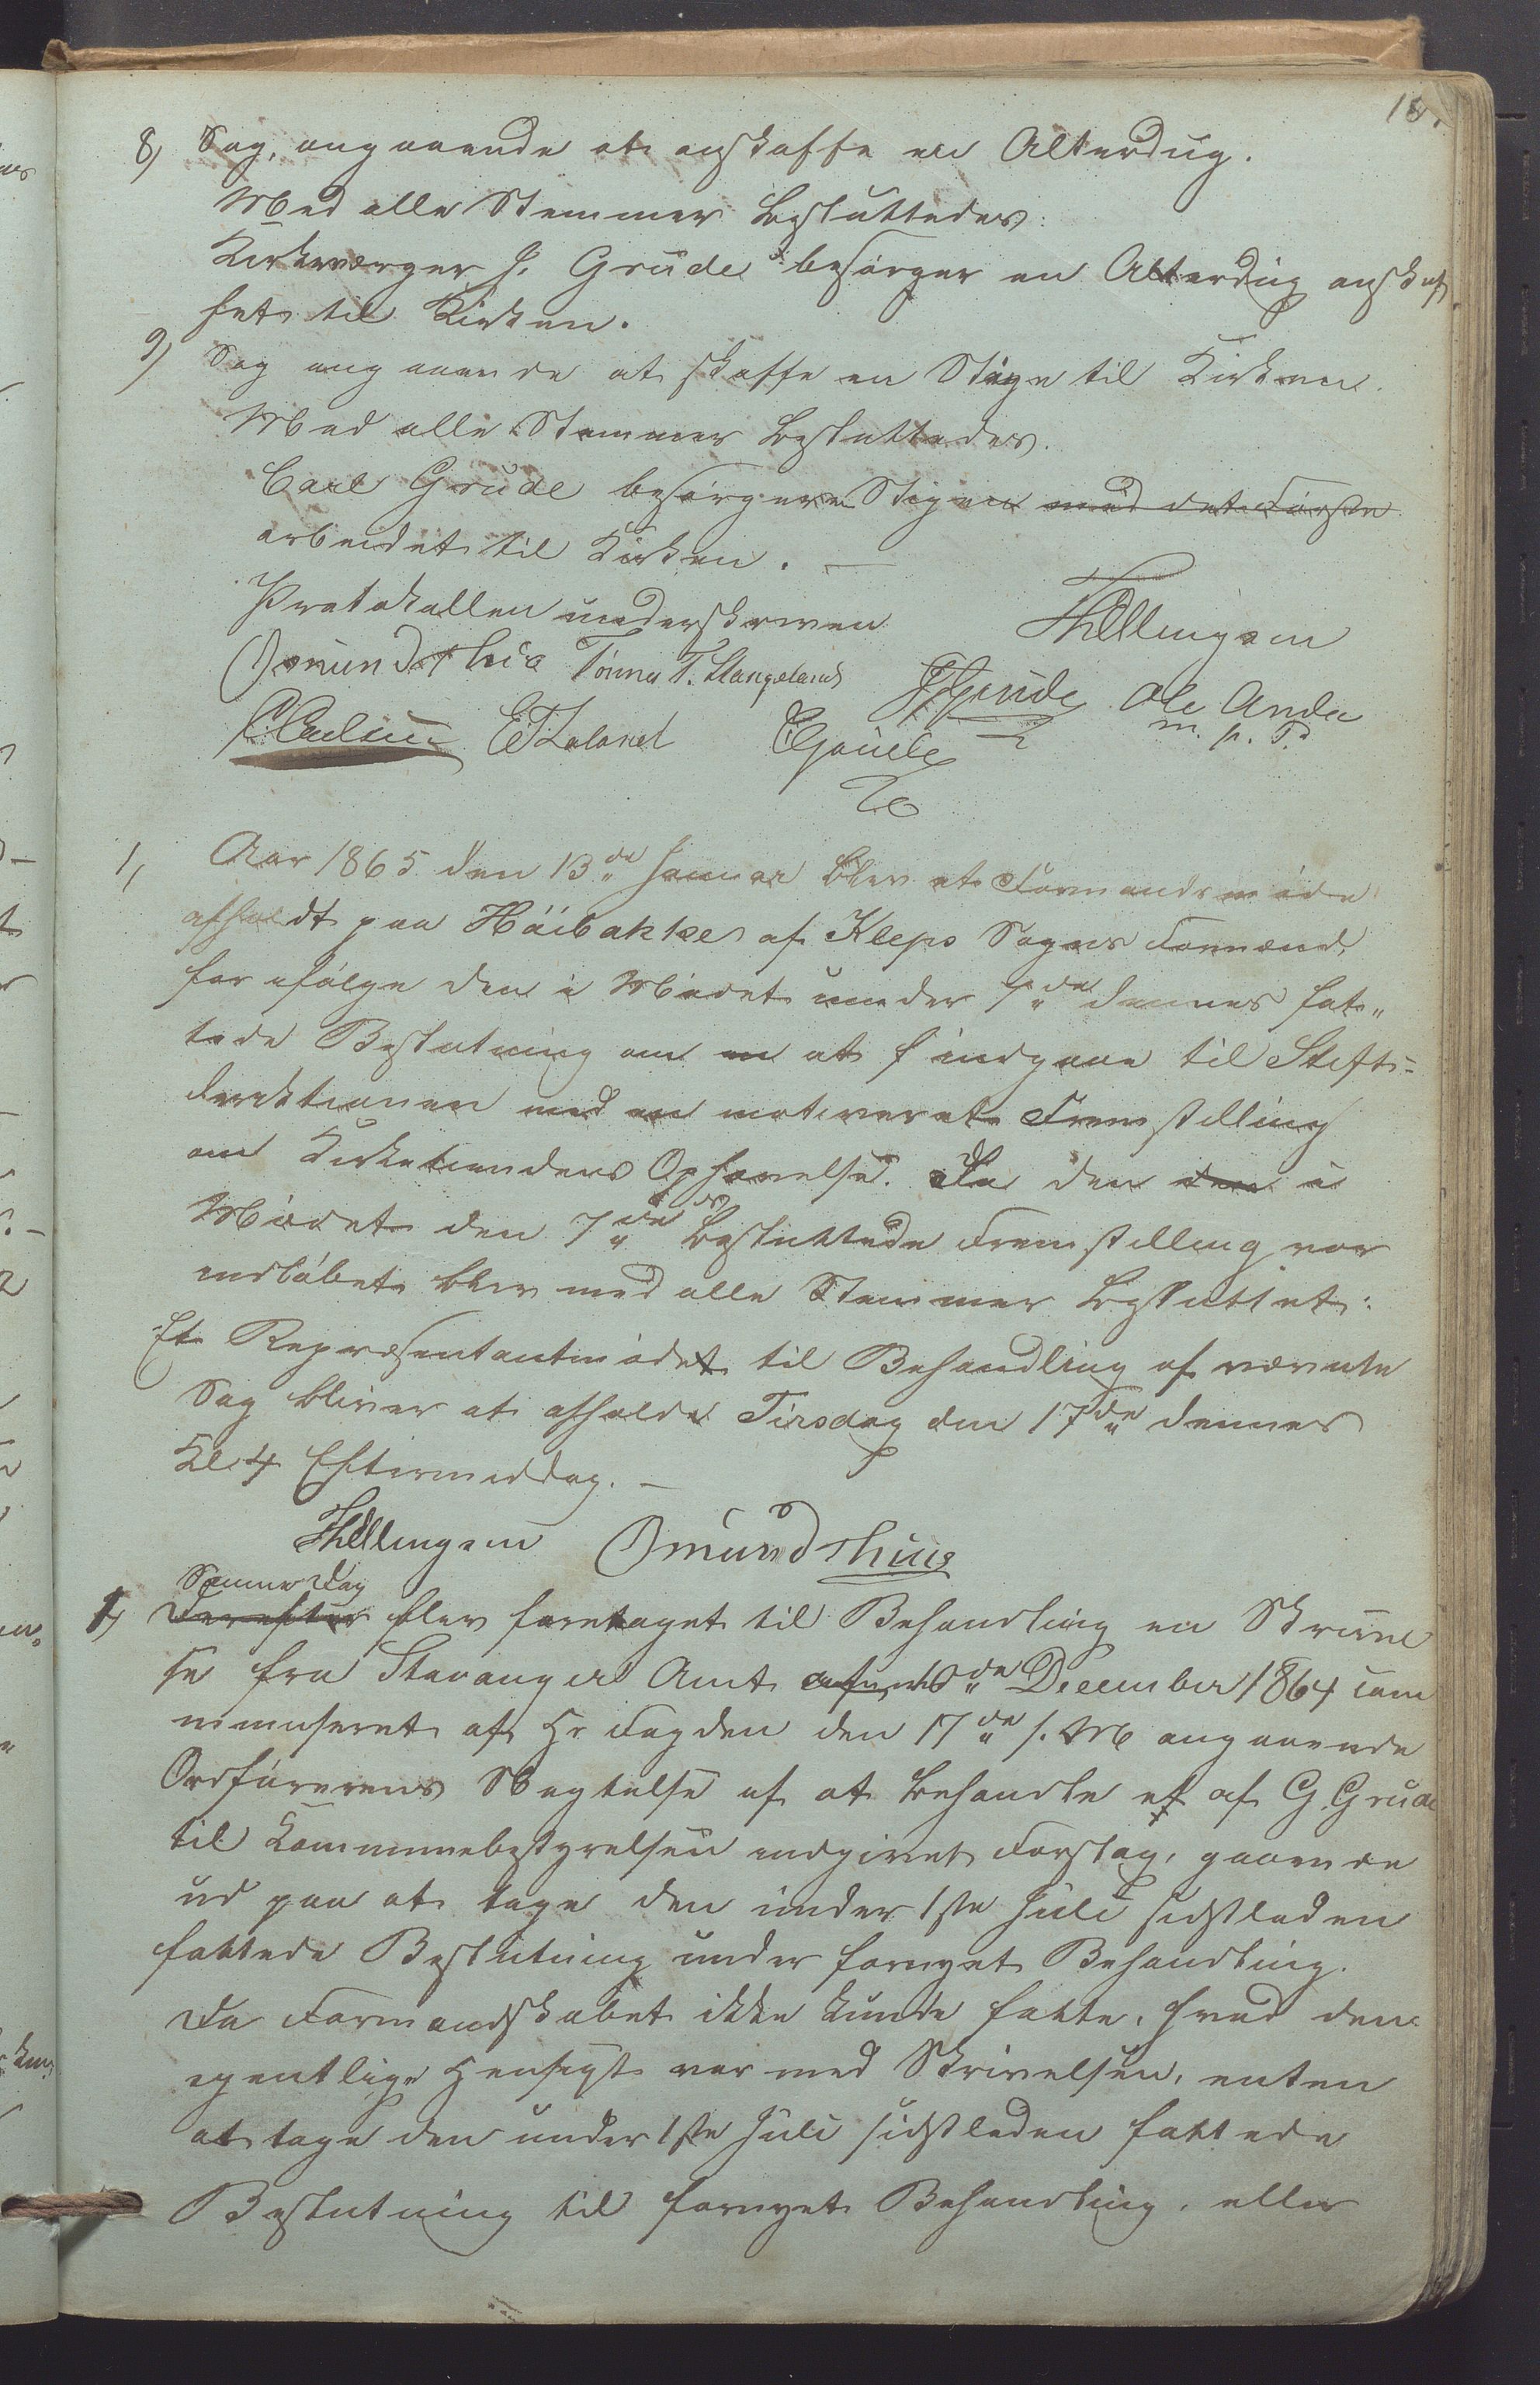 18.
8) Sag, angaaende at anskaffe en Alterdug.
Med alle Stemmer besluttedes:
Kirkeværger J. Grude besörger en Alterdug anskaf
fet til Kirken.
9) Sag angaaende at skaffe en Stige til Kirken.
Med alle Stemmer besluttedes.
Carl Grude besörger Stigen med det Förste
arbeidet til Kirken. —
Protokollen underskreven
Hellingsen
Omund Thu Tönnes T. Stangeland
JGrude Ole Anda
m. p. P.
E Loland CGrude
1, Aar 1865 den 13de Januar blev et Formandsmöde
afholdt paa Höibakke af Kleps Sogns Formænd,
for ifölge den i Mödet under 7de dennes fat"
tede Beslutning om en at indgaae til Stifts-
direktionen med en motiveret Fremstilling
om Kirketiendens Ophævelse. Da den den i
Mödet den 7de ds besluttede Fremstilling var
indlöbet blev med alle Stemmer besluttet:
Et Repræsentantmödet til Behandling af nævnte
Sag bliver at afholde Tirsdag den 17de dennes
Kl. 4 Eftermiddag. —
Hellingsen Omund Thu
Samme Dag
1) Derefter blev foretaget til Behandling en Skrivel
se fra Stavanger Amt af 10de December 1864 com
muniseret af Hr Fogden den 17de s. M angaaende
Ordförerens Negtelse af at behandle et af G. Grude
til Kommunebestyrelsen indgivet Forslag, gaaende
ud paa at tage den under 1ste Juli sidstleden
fattede Beslutning under fornyet Behandling.
Da Formandskabet ikke kunde fatte, hvad den
egentlige Hensigt var med Skrivelsen, enten
at tage den under 1ste Juli sidstleden fattede
Beslutning til fornyet Behandling, eller